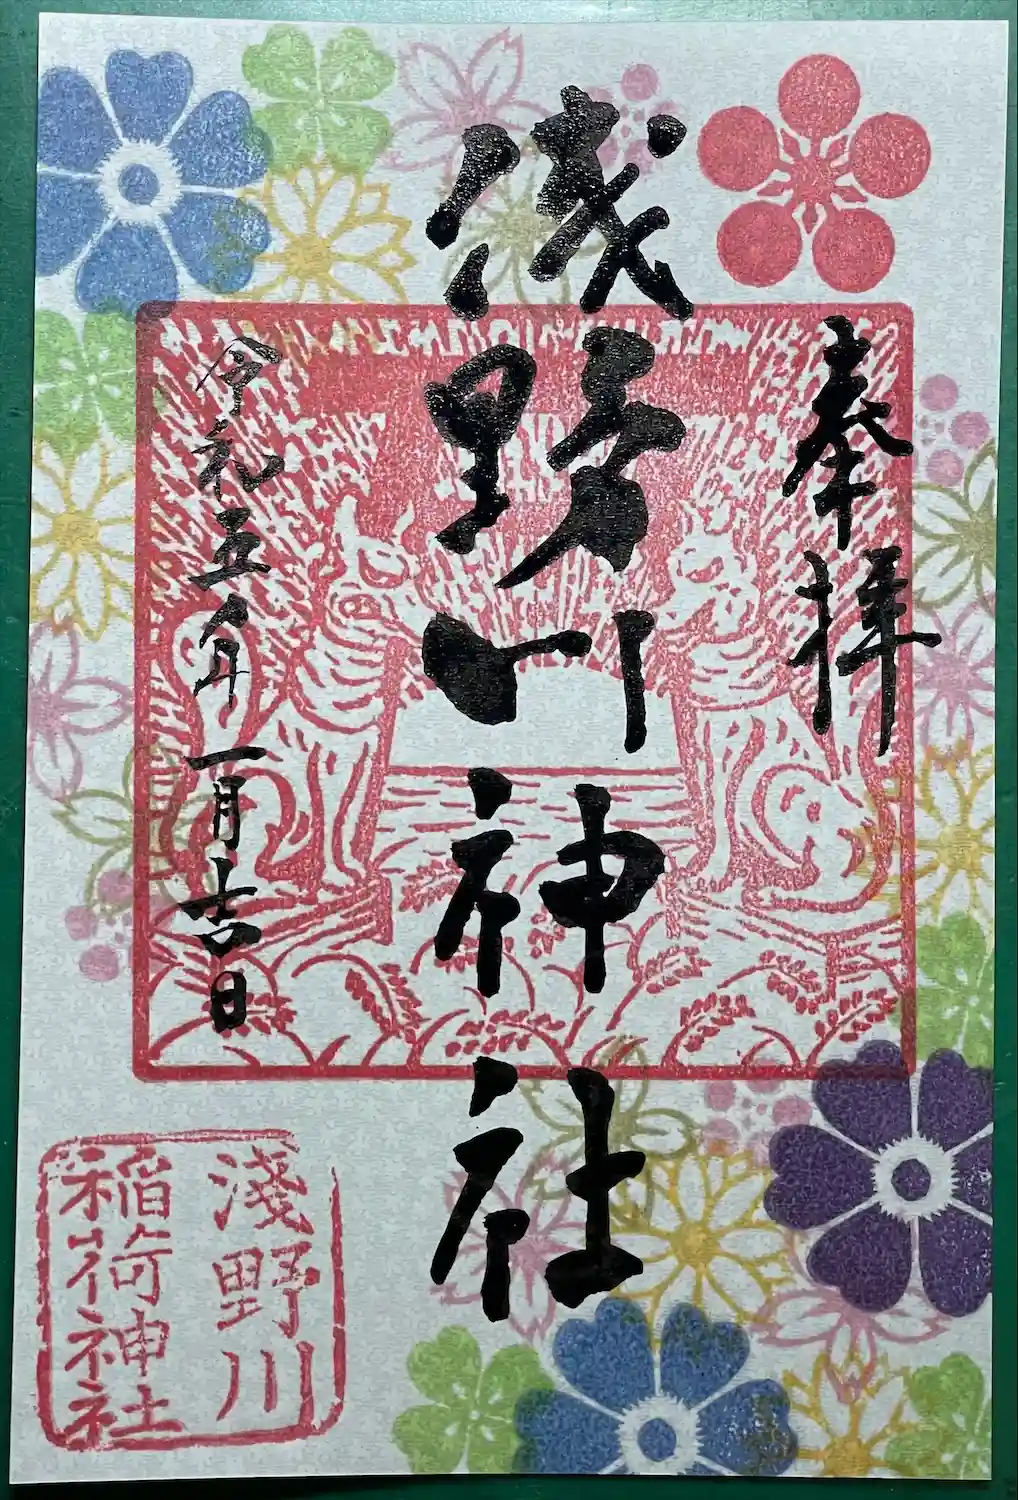 奉拝
淺野川神社
令和五年一月吉日
淺野川
稲荷神社